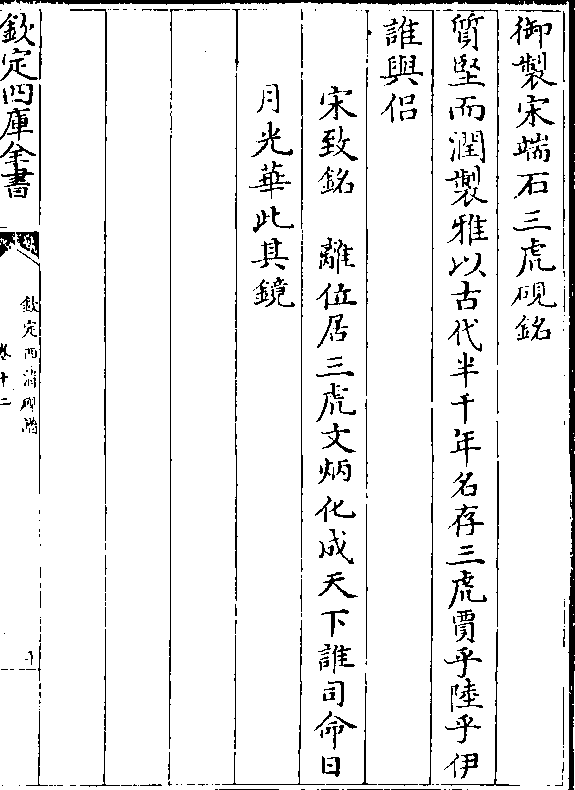 御製宋端石三虎硯銘
質堅而潤製雅以古代半千年名存三虎賈乎陸乎伊
誰與侣
宋致銘　離位居三虎文炳化成天下誰司命日
月光華此其鏡
欽定四庫全書
欽定西清硯譜
卷十二